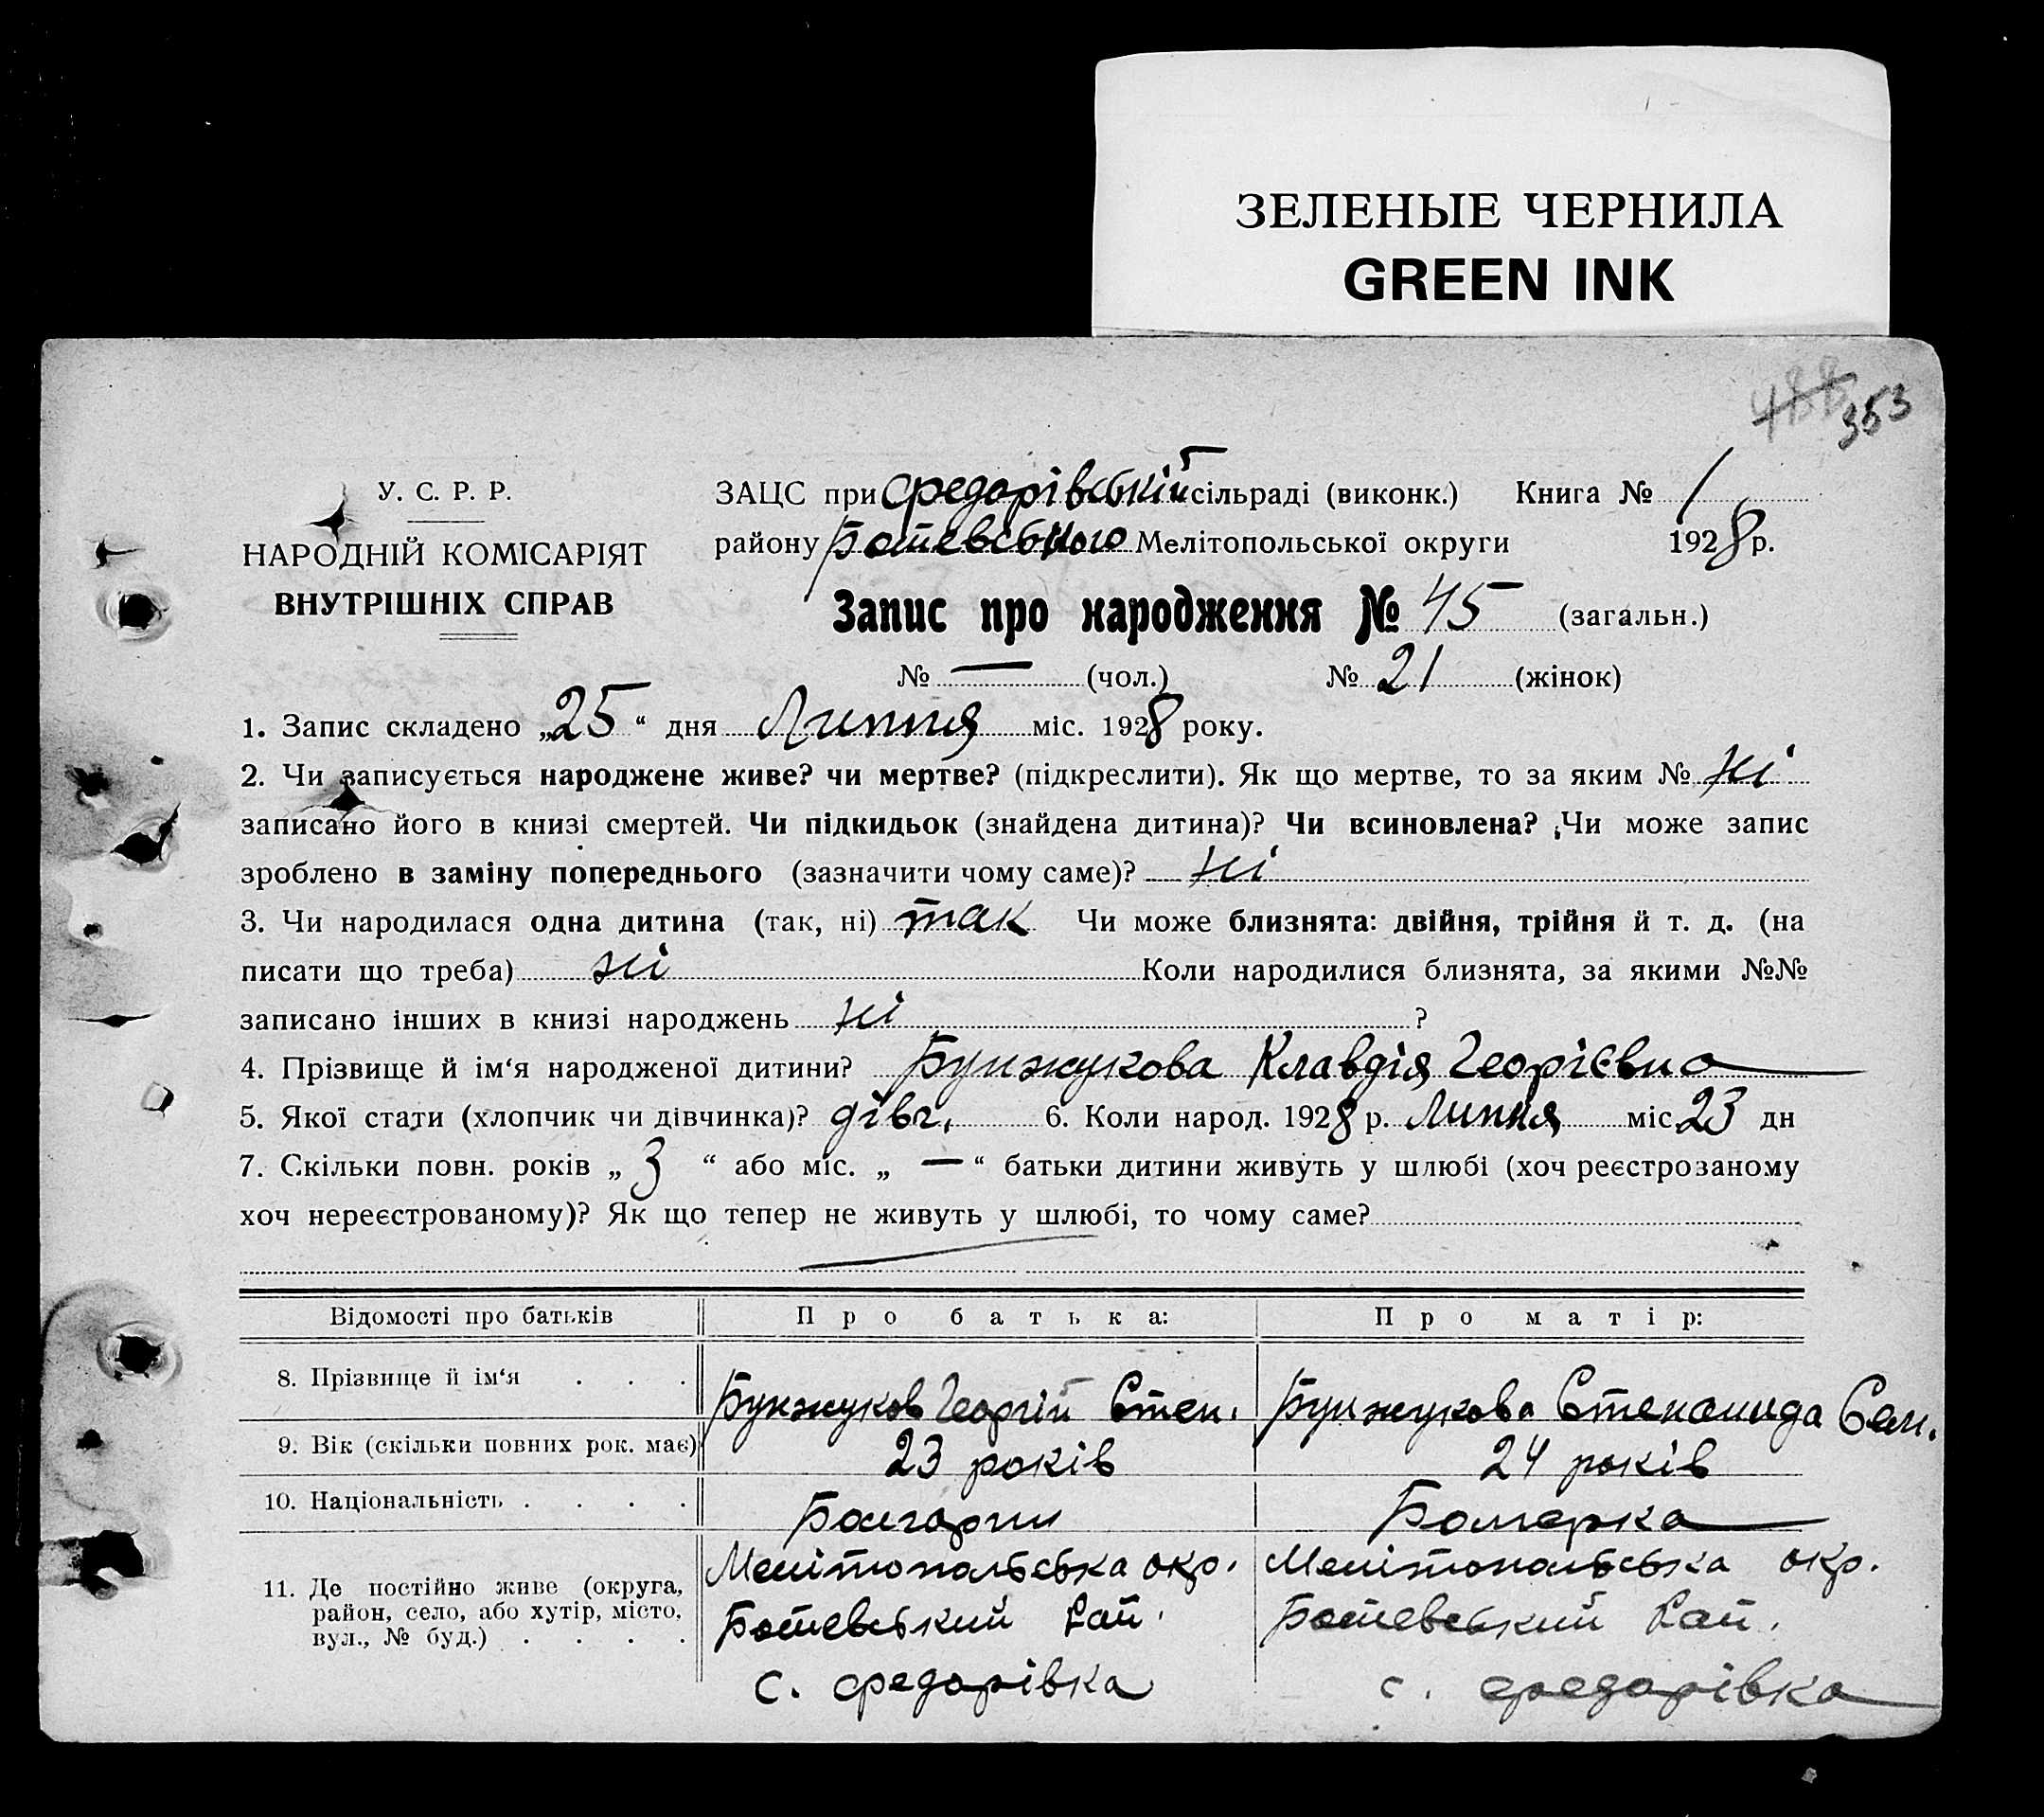 ЗЕЛЕНЫЕ ЧЕРНИЛА
GREEN INK
353
У. С. Р. Р.
НАРОДНІЙ КОМІСАРІЯТ
ВНУТРІШНІХ СПРАВ
ЗАЦС при Федорівській сільраді (виконк.) Книга № 1
району Ботевського Мелітопольської округи 1928 р.
Запис про народження № 45 (загальн.)
№ — (чол.) № 21 (жінок)
1. Запис складено „25“ дня Липня міс. 1928 року.
2. Чи записується народжене живе? чи мертве? (підкреслити). Як що мертве, то за яким № ні
записано його в книзі смертей. Чи підкидьок (знайдена дитина)? Чи всиновлена? Чи може запис
зроблено в заміну попереднього (зазначити чому саме)? ні
3. Чи народилася одна дитина (так, ні) так Чи може близнята: двійня, трійня й т. д. (на
писати що треба) ні Коли народилися близнята, за якими №№
записано інших в книзі народжень ні ?
4. Прізвище й ім‘я народженої дитини? Бунжукова Клавдія Георгієвна
5. Якої стати (хлопчик чи дівчинка)? дівч. 6. Коли народ. 1928 р. Липня міс 23 дн
7. Скільки повн. років „ 3 “ або міс. „ — “ батьки дитини живуть у шлюбі (хоч реєстрозаному
хоч нереєстрованому)? Як що тепер не живуть у шлюбі, то чому саме?
Відомості про батьків Про батька: Про матір:
8. Прізвище й ім‘я . . . Бунжуков Георгій Степ. Бунжукова Степанида Сем.
9. Вік (скільки повних рок. має) 23 років 24 років
10. Національність . . . . Болгарин Болгарка
11. Де постійно живе (округа, район, село, або хутір, місто, вул., № буд.) . . . .
Мелітопольська окр. Мелітопольська окр.
Ботевський Рай. Ботевський Рай.
с. Федорівка с. Федорівка